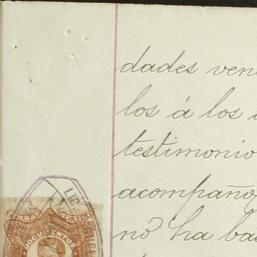 dades ven
los á los
testimonio
acompaño
no ha ba